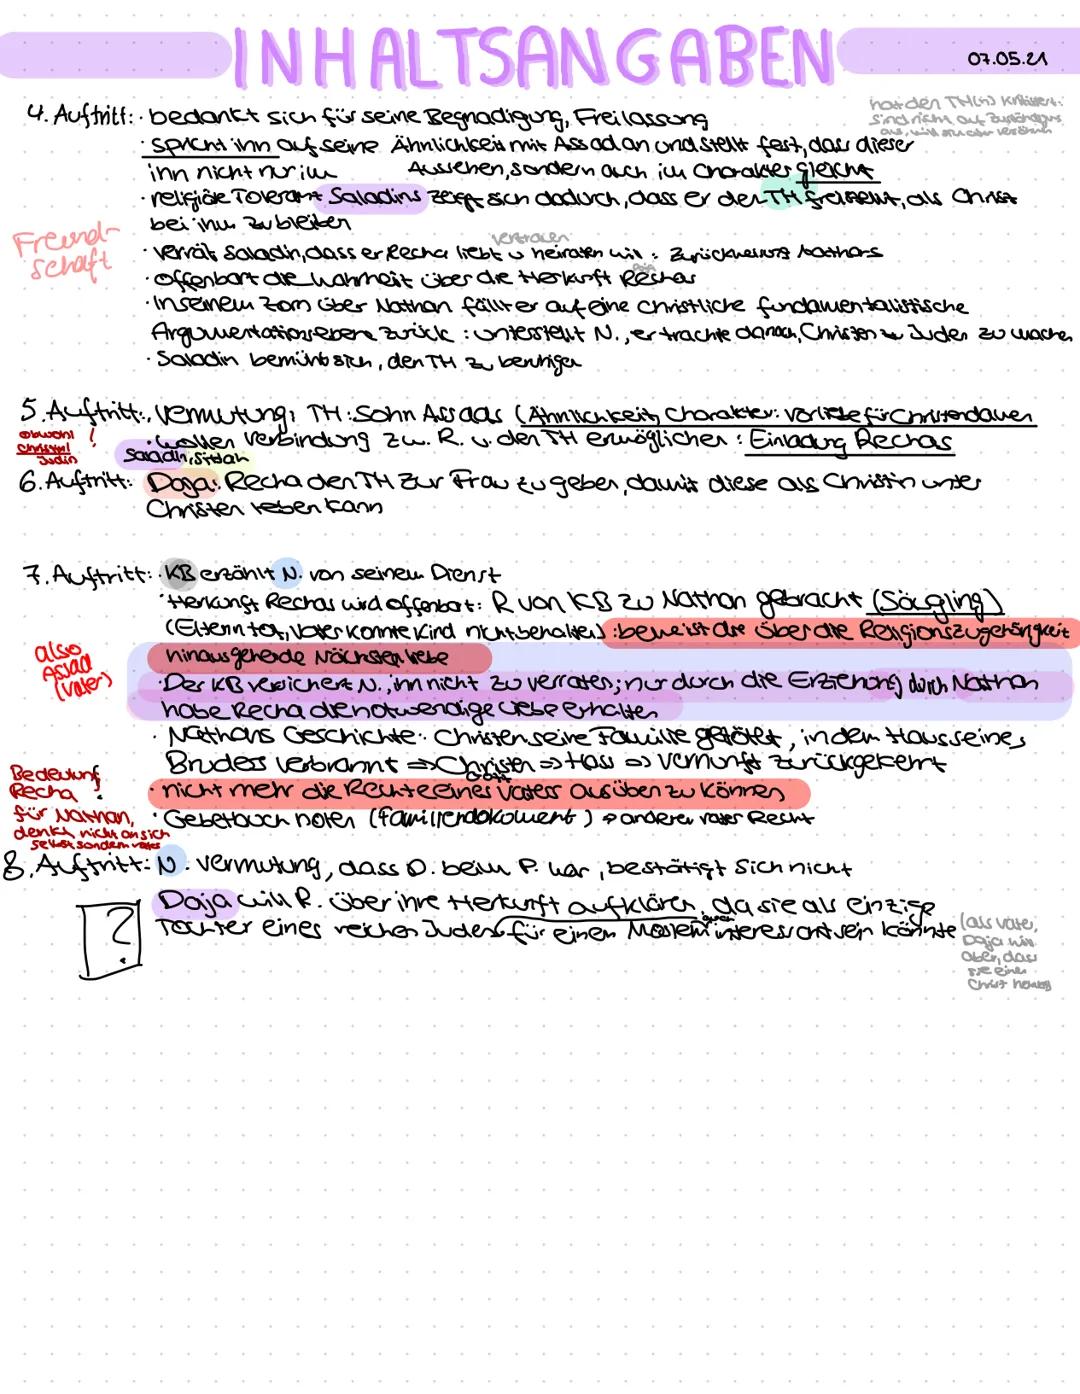 INHALTSANGABEN
07.05.21
hat den TH(N) kritisiert:
sind nicht auf
aus, will
4. Auftritt: · bedankt sich für seine Begnadigung, Freilassung
· spricht ihn auf seine Ähnlichkeit mit Assad an und stellt fest, dass dieser
ihn nicht nur im Aussehen, sondern auch im Charakter gleicht
· religiöse Toleranz Saladins zeigt sich dadurch, dass er den TH freistellt, als Christ
bei ihm zu bleiben
Freund-
schaft
vertrauen
· verrät Saladin, dass er Recha liebt u heiraten will : Zurückweisung Nathans
· offenbart die Wahrheit über die Herkunft Rechas
Daja
· In seinem Zorn über Nathan fällt er auf eine christliche fundamentalistische
Argumentationsebene zurück : unterstellt N., er trachte danach, Christen zu Juden zu machen
· Saladin bemüht sich, den TH zu beruhigen
5. Auftritt: · Vermutung: TH: Sohn Assads (Ähnlichkeit, Charakter: Vorliebe für Christendamen
· wollen Verbindung zw. R. u. den TH ermöglichen : Einladung Rechas
obwohl !
Christin/
Jüdin
Saladin, Sittah
6. Auftritt: Daja: Recha den TH zur Frau zu geben, damit diese als Christin unter
Christen leben kann
7. Auftritt: · KB erzählt N. von seinem Dienst
· Herkunft Rechas wird offenbart: R von KB zu Nathan gebracht (Säugling)
(Eltern tot, Vater konnte Kind nicht behalten) : beweist die über die Religionszugehörigkeit
hinausgehende Nächstenliebe
also
Assad
(Vater)
· Der KB versichert N., ihn nicht zu verraten; nur durch die Erziehung durch Nathan
habe Recha die notwendige Liebe erhalten
· Nathans Geschichte: Christen seine Familie getötet, in dem Haus seines
Bruders verbrannt => Christen => Hass => Vernunft zurückgekehrt
Gott
· nicht mehr die Rechte eines Vaters ausüben zu können
Bedeutung
Recha
für Nathan,
denkt nicht an sich
selbst sondern
· Gebetbuch holen (Familiendokument) → anderer Vater Recht
8. Auftritt: N. Vermutung, dass D. beim P. war, bestätigt sich nicht
?
Daja will R. über ihre Herkunft aufklären, da sie als einzige
Tochter eines reichen Juden für einen Moslem interessant sein könnte
auch
(als Vater,
Daja will
aber, dass
sie einen
Christ heiratet